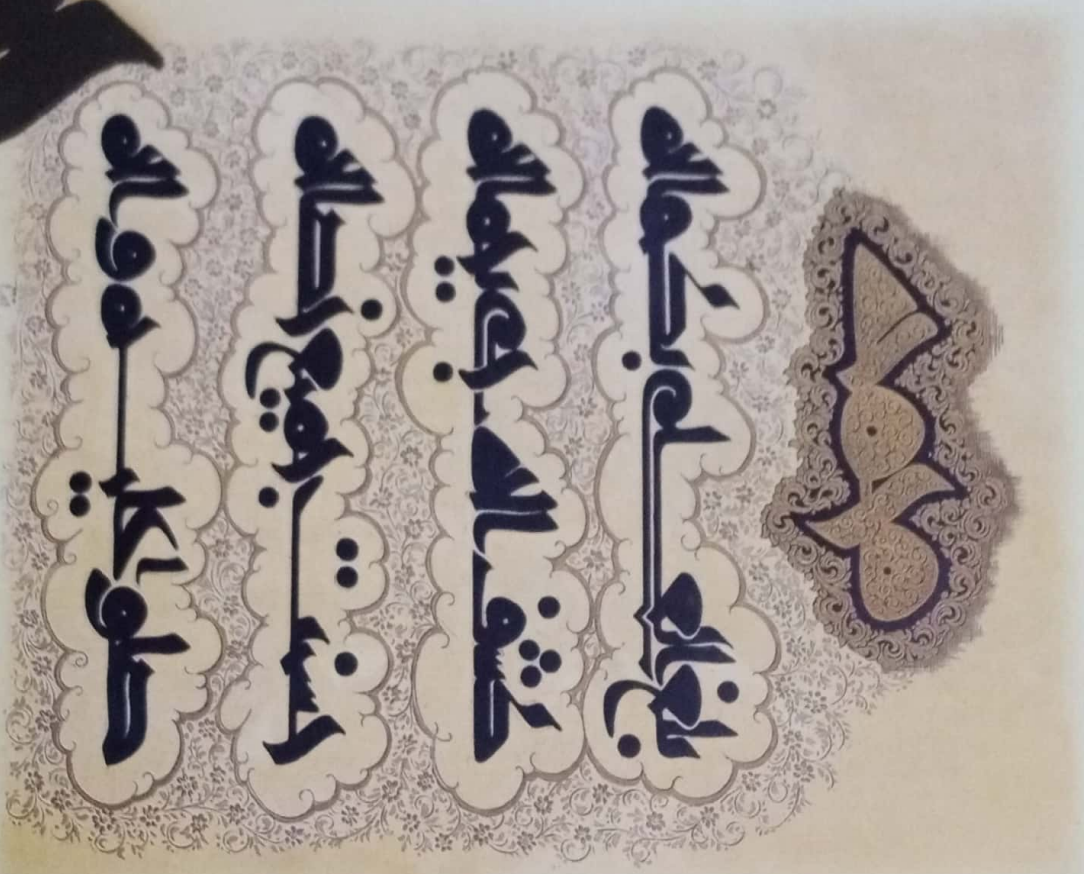 محمد
بلغ العلى بكماله
كشف الدجي بجماله
حسنت جميع خصاله
صلوا عليه وآله